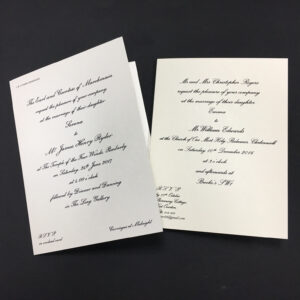 The Earl and Countess of
request the pleasure of your company
at the marriage of their daughter
to
Mr James Henry Ryder
at The Temple of the Four Winds,
on Saturday 24th June 2017
at 4.00 o'clock
followed by Dinner and Dancing
in The Long Gallery
R.S.V.P.
Carriages at Midnight
Mr and Mrs Christopher Rogers
request the pleasure of your company
at the marriage of their daughter
Emma
to
Mr William Edwards
at the Church of Our Most Holy Redeemer, Clerkenwell
on Saturday 10th December 2016
at 2 o'clock
and afterwards at
R.S.V.P.